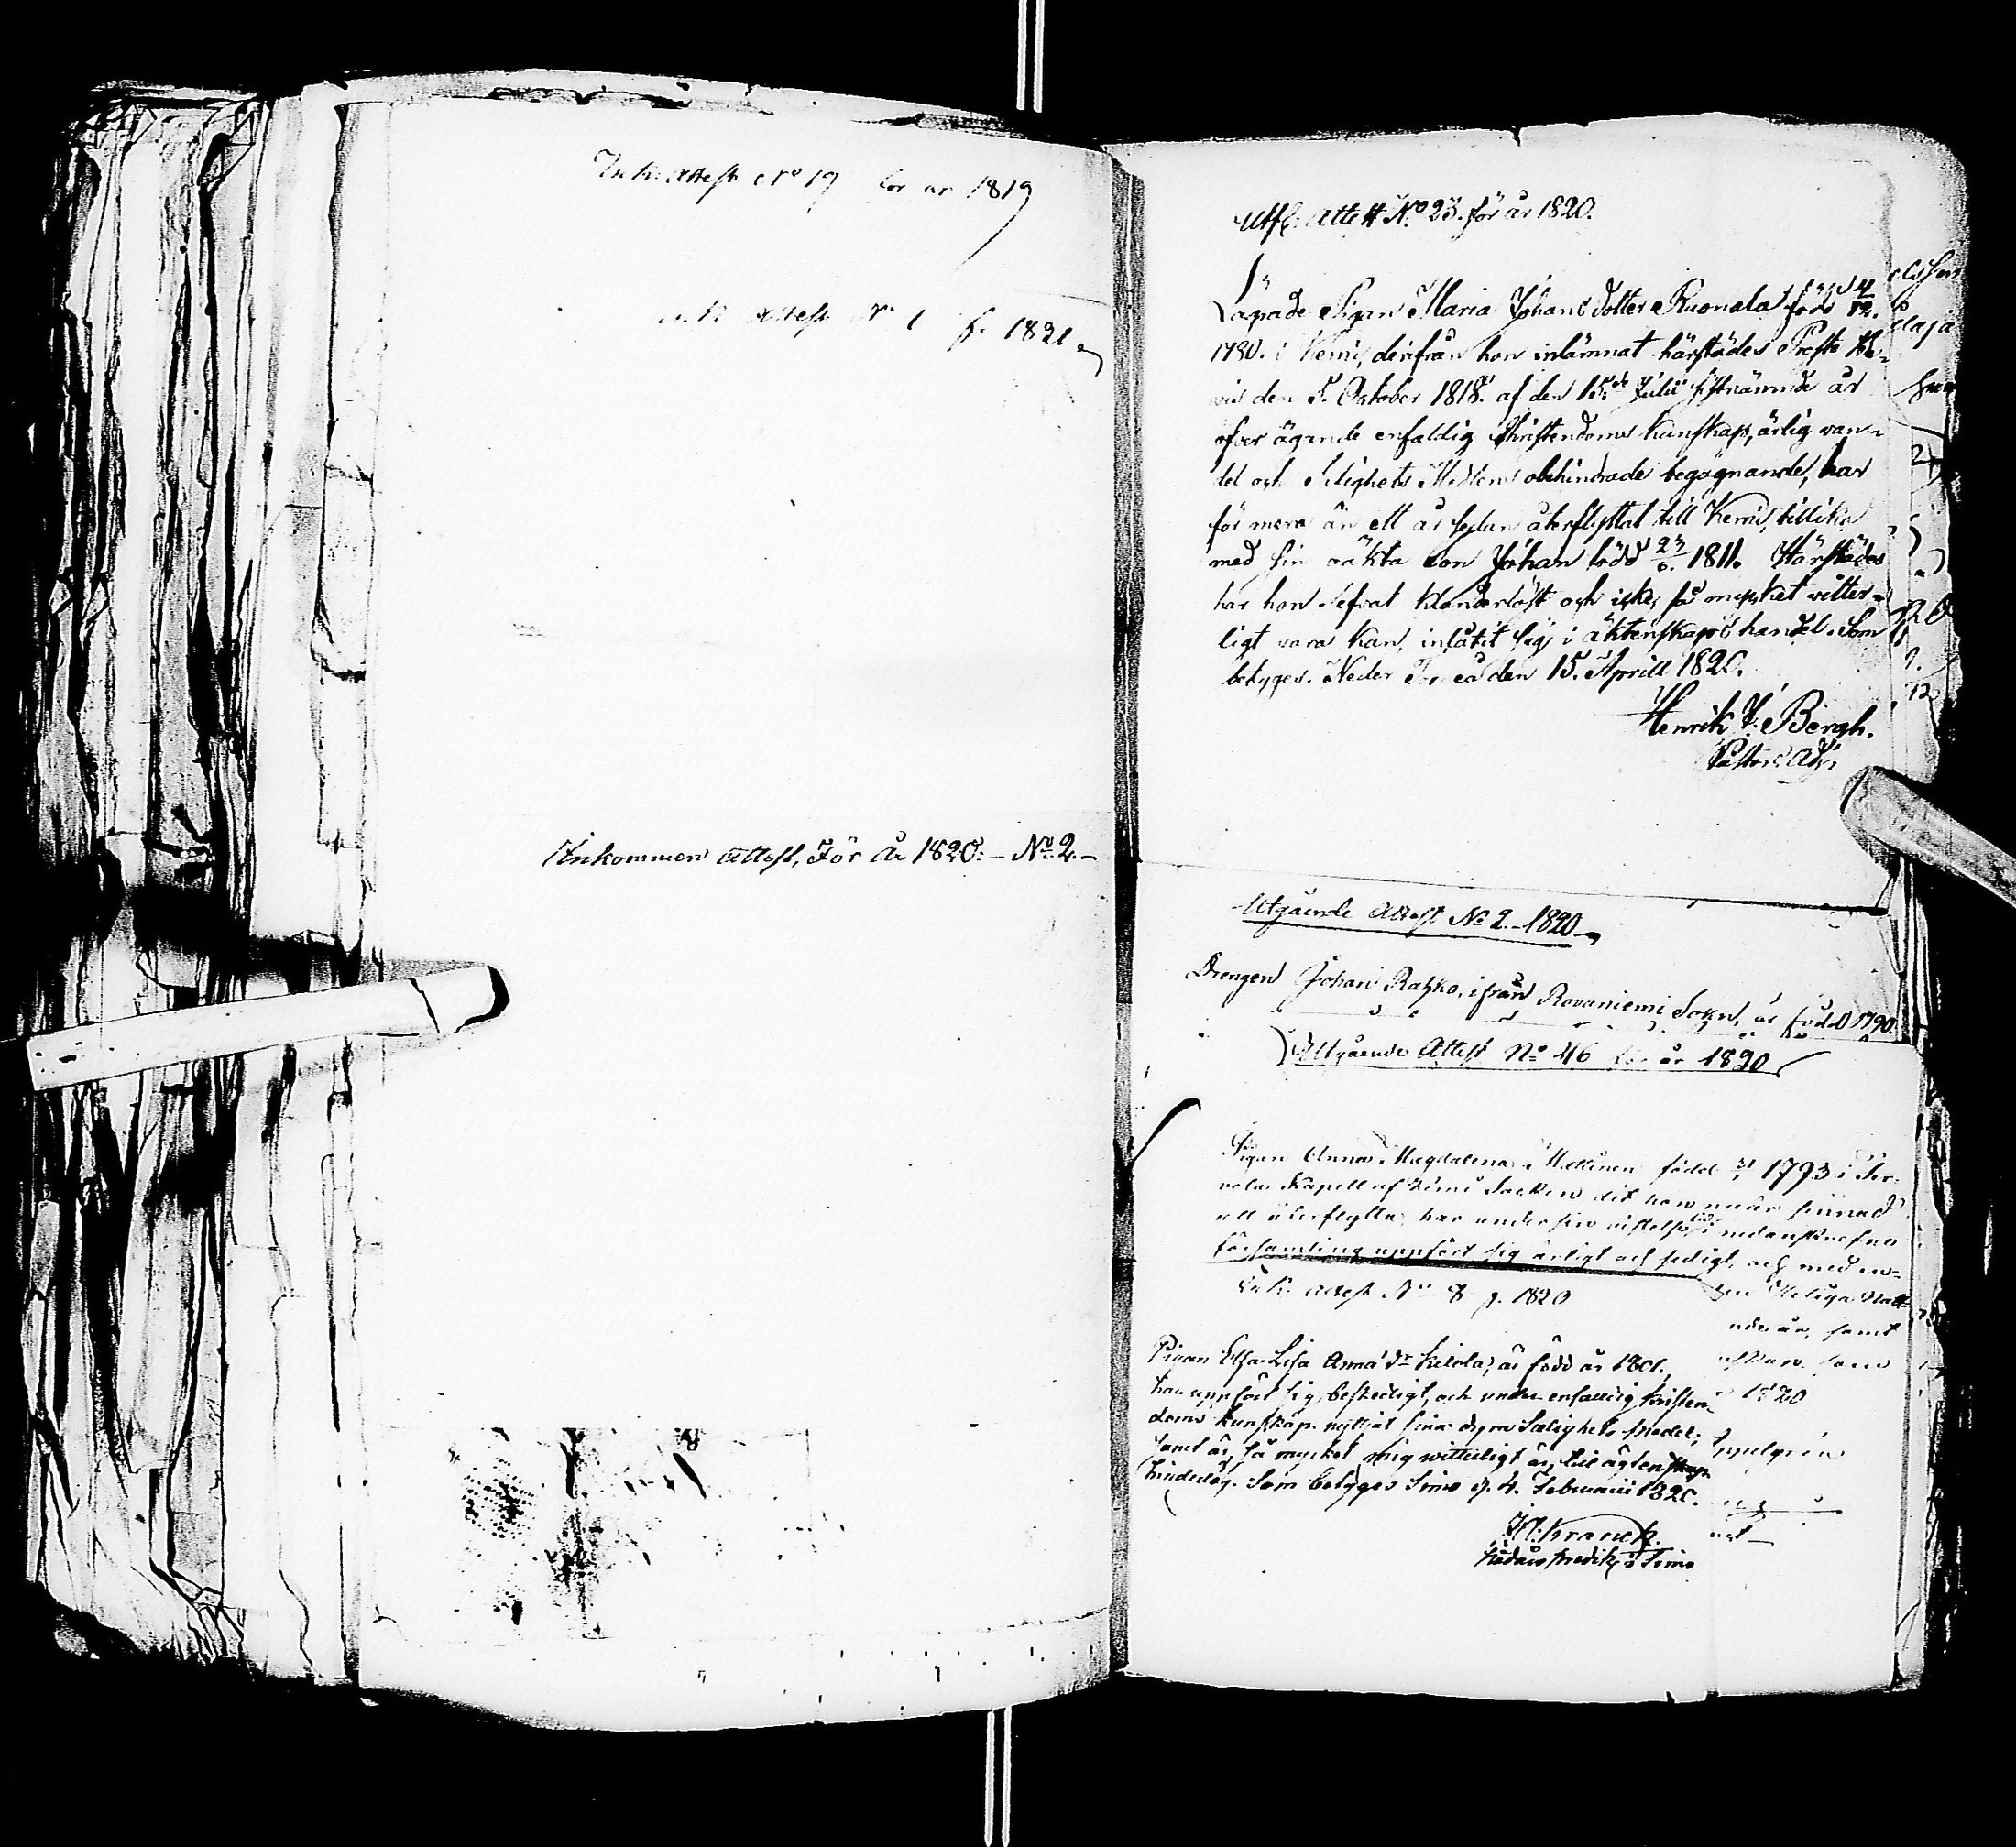 Ink. Attest No 19 för år 1819
Ink. Attest No 1 f. 1821
Inkommen Attest, För År 1820. - No 2. -
Utfl. Attest No 23. för år 1820.
Lägade Pigan Maria Johans dotter Ruonala född 4/12.
1780. i Kemi, derifrån hon inlämnat härstädes Preste Be-
vis den 5. October 1818. af den 15de Julii sistnämnde år
öfver ägande enfaldig Christendoms kunskap, ärlig van-
del och Salighets Medlens obehindrade begagnande, har
för mera än ett år sedan återflyttat till Kemi, tillika
med sin oäkta Son Johan född 23/6. 1811. Härstädes
har hon lefvat klanderlöst och icke, så mycket witter-
ligt vara kan, inlåtit sig i äktenskaps handel. Som
betyges. Neder Torneå den 15. Aprill 1820.
Henrik J. Bergh.
Pastors Adj.
Utgående Attest No 2. - 1820
Drengen Johan Ratzko, ifrån Rovaniemi Sokn, är född 1790.
Utgående Attest No 46 för år 1820
Pigan Anna Magdalena Mattinen född 1793 i Ter-
vola Kapell af Kemi Socken dit hon nu är sinnad
att återflytta, har under sin vistelse tid i nedanskrefne
församling uppfört sig ärligt och sedigt, och med en-
Ink. Attest No 8 f. 1820
Pigan Elsa Lisa Anna dr Kilola, är född år 1801,
har uppfört sig beskedligt, och under enfaldig kristen-
doms kunskap nyttjat sina dyra Salighets medel;
samt är, så mycket mig witterligt är, till ägtenskap
hinderlög. Som betyges Simo d. 4. Februarii 1820.
Kranck.
Sådnes predik. i Simo
den Heliga Natt-
nder år, samt
som
1820
ppelgrén